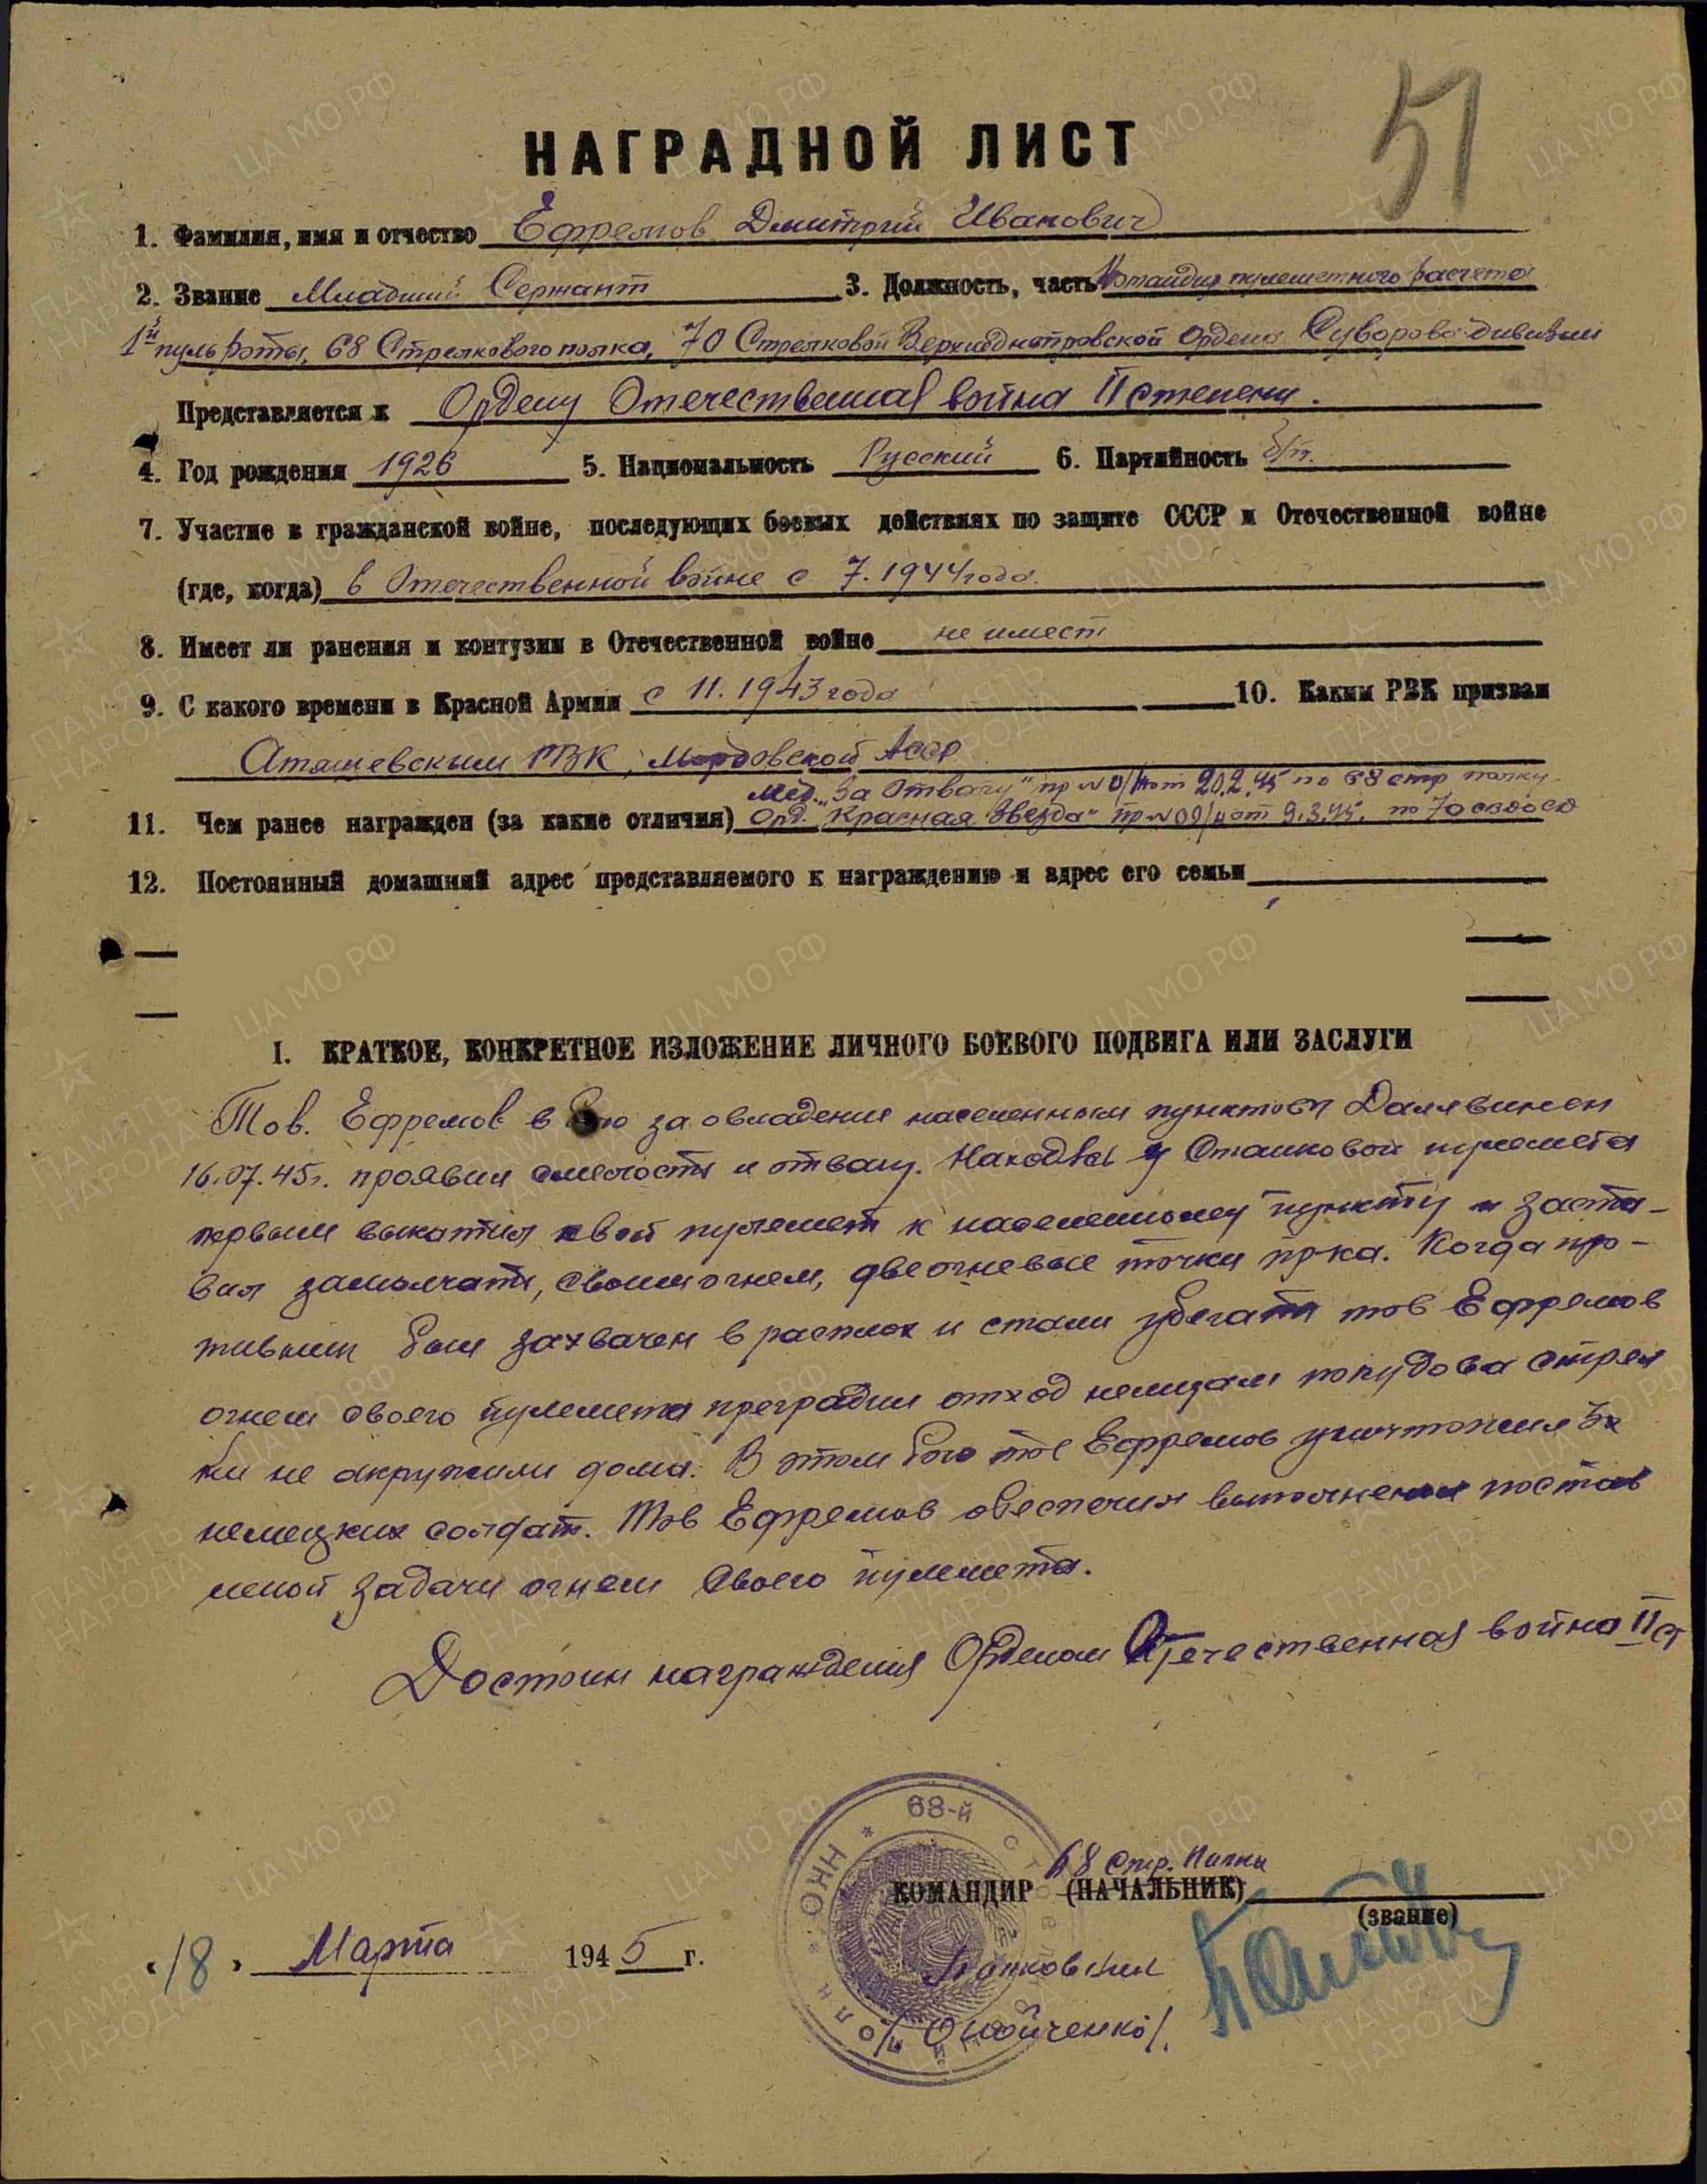 51
НАГРАДНОЙ ЛИСТ
1. Фамилия, имя и отчество Ефремов Дмитрий Иванович
2. Звание Младший Сержант 3. Должность, часть Командир пулеметного расчета
1й пуль роты, 68 Стрелкового полка, 70 Стрелковой Верхнеднепровской ордена Суворова дивизии
Представляется к Ордену Отечественная война II степени.
4. Год рождения 1926 5. Национальность Русский 6. Партийность б/п.
7. Участие в гражданской войне, последующих боевых действиях по защите СССР и Отечественной войне
(где, когда) в Отечественной войне с 7.1944 года.
8. Имеет ли ранения и контузии в Отечественной войне не имеет
9. С какого времени в Красной Армии с 11.1943 года 10. Каким РВК призван
Атяшевским РВК, Мордовской АССР
Мед. „За Отвагу" пр №0/ от 20.2.45 по 68 стр полку
11. Чем ранее награжден (за какие отличия) Орд. „Красная Звезда" пр №09/н от 9.3.45. по 70
12. Постоянный домашний адрес представляемого к награждению и адрес его семьи
I. КРАТКОЕ, КОНКРЕТНОЕ ИЗЛОЖЕНИЕ ЛИЧНОГО БОЕВОГО ПОДВИГА ИЛИ ЗАСЛУГИ
Тов. Ефремов в бою за овладение населенным пунктом Далявинен
16.07.45г. проявил смелость и отвагу. Находясь у Станковой пулемета
первым выкатил свой пулемет к населенному пункту и заста-
вил замолчать, своим огнем, две огневые точки пр-ка. Когда про-
тивник был захвачен в расплох и стали убегать тов Ефремов
огнем своего пулемета преградил отход немцам покудова стрел
ки не окружили дома. В этом бою тов Ефремов уничтожил
немецких солдат. Тов Ефремов обеспечил выполнение постав
леной задачи огнем своего пулемета.
Достоин награждения Орденом Отечественная война II ст
68 Стр. Полка
КОМАНДИР (НАЧАЛЬНИК)
(звание)
„18" Марта 1945 г.
Полковник
68-й СТРЕЛКОВЫЙ ПОЛК * НКО *
ЦА МО РФ
ПАМЯТЬ НАРОДА